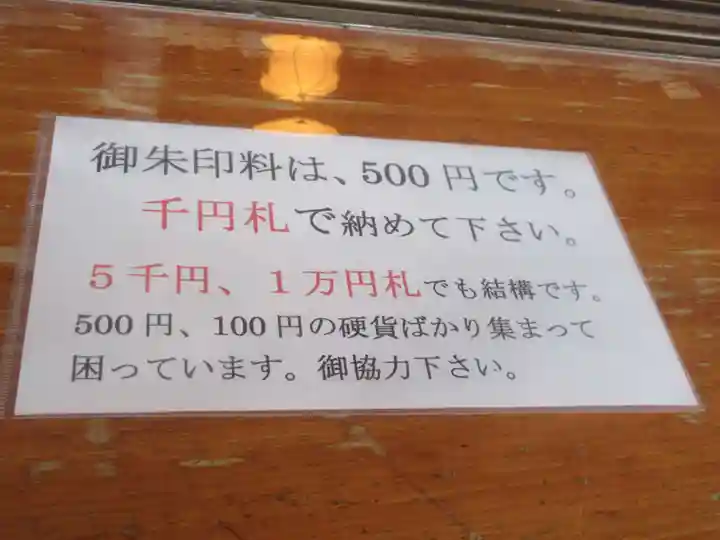 御朱印料は、500円です。
千円札で納めて下さい。
５千円、１万円札でも結構です。
500円、100円の硬貨ばかり集まって
困っています。御協力下さい。